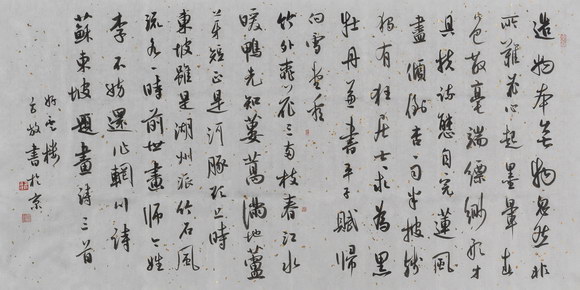 造物本無物忽然非
所難花心起墨暈春
色散毫端縹緲形才
具扶疏態自完蓮風
盡傾倒杏雨半披殘
獨有狂居士求為黑
牡丹兼書平子賦歸
向雪堂看
竹外桃花三两枝春江水
暖鴨先知蔞蒿滿地蘆
芽短正是河豚欲上時
東坡雖是湖州派竹石風
流各一時前世畫師今姓
李不妨還作輞川詩
蘇東坡題畫詩三首
樓
牧書於京